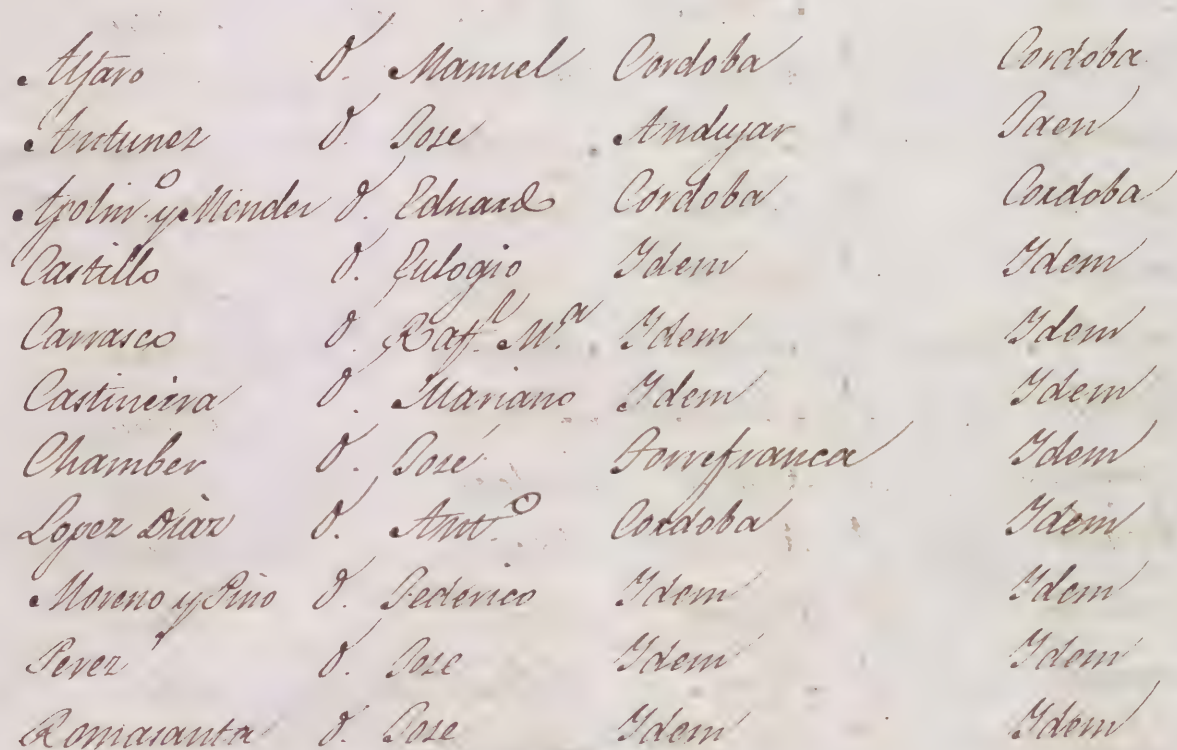 Alfaro D. Manuel Cordoba Cordoba
Antunez D. Jose Andujar Jaen
Apolin.o y Mendez D. Eduardo Cordoba Cordoba
Castillo D. Eulogio Idem Idem
Carrasco D. Raf.l M.a Idem Idem
Castineira D. Mariano Idem Idem
Chamber D. José Torrefranca Idem
Lopez Diàz D. Ant.o Cordoba Idem
Moreno y Pino D. Federico Idem Idem
Perez D. Jose Idem Idem
Romasanta D. Jose Idem Idem